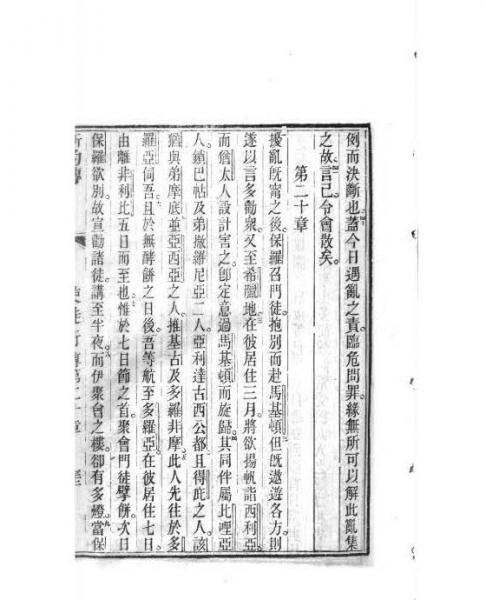 例而決斷也蓋今日遇亂之責臨危問罪緣無所可以解此亂集
之故言已令會散矣
第二十章
擾亂旣甯之後保羅召門徒抱別而赴馬基頓但旣遨遊各方則
遂以言多勸衆又至希臘地在彼居住三月將欲揚帆詣西利亞
而猶太人設計害之卽定意過馬基頓而旋歸其同伴屬比哩亞
人鎖巴帖及弟撒羅尼亞二人亞利達古西公都且得庇之人該
猶與弟摩底並亞西亞之人推基古及多羅非摩此人先往於多
羅亞伺吾且於無酵餅之日後吾等航至多羅亞在彼居住七日
由離非利比五日而至也惟於七日節之首聚會門徒擘餅次日
保羅欲別故宣勸諸徒講至半夜而伊聚會之樓卻有多燈當保